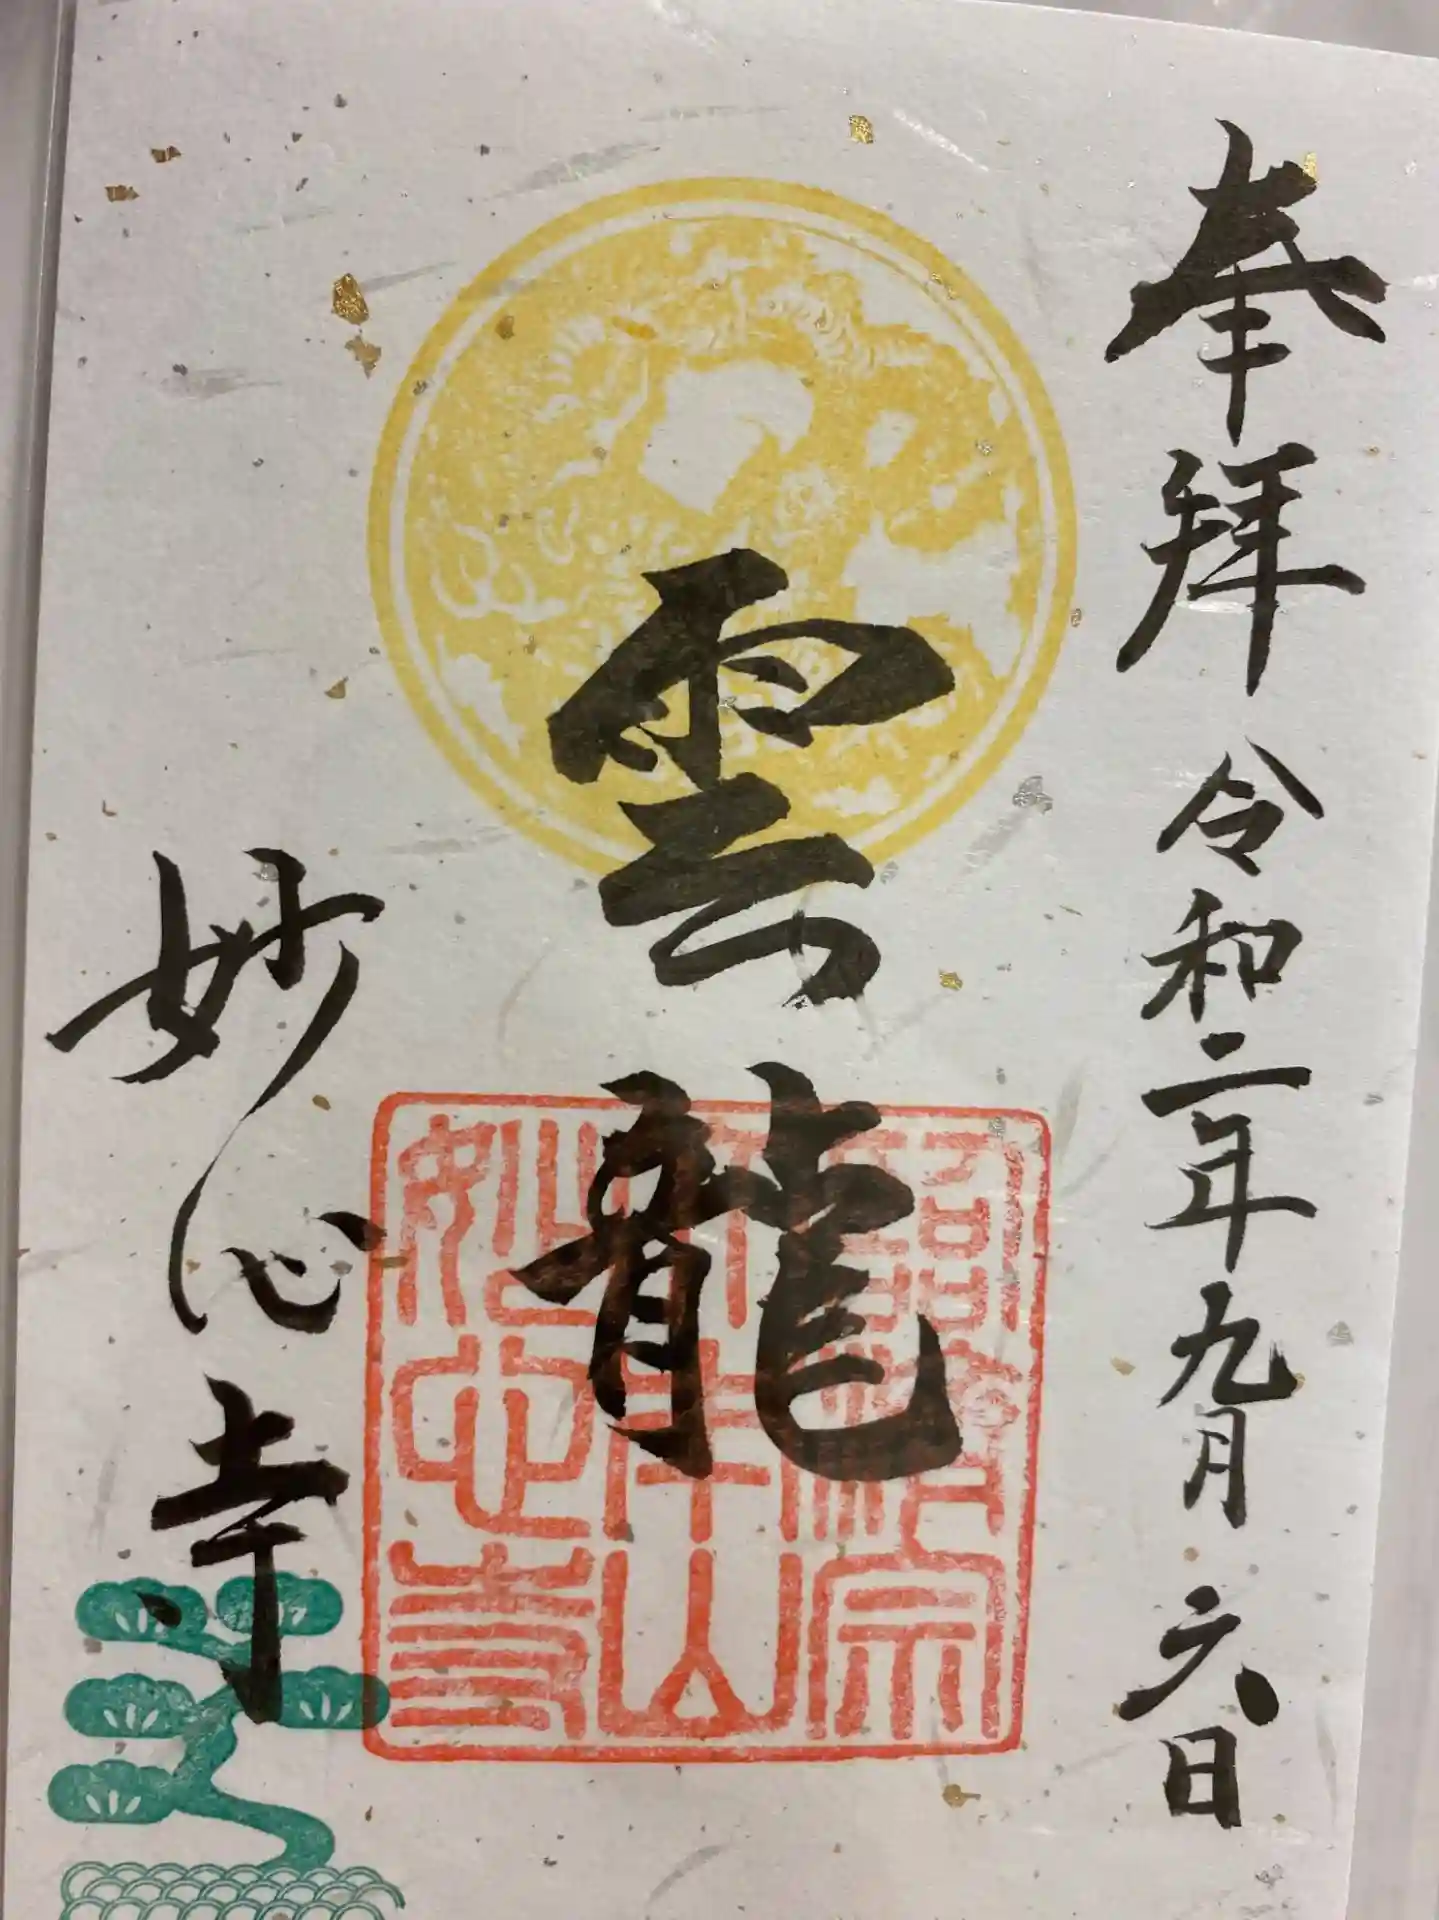 奉拜 令和二年九月六日
雲龍
妙心寺
臨済宗
正法山
妙心寺